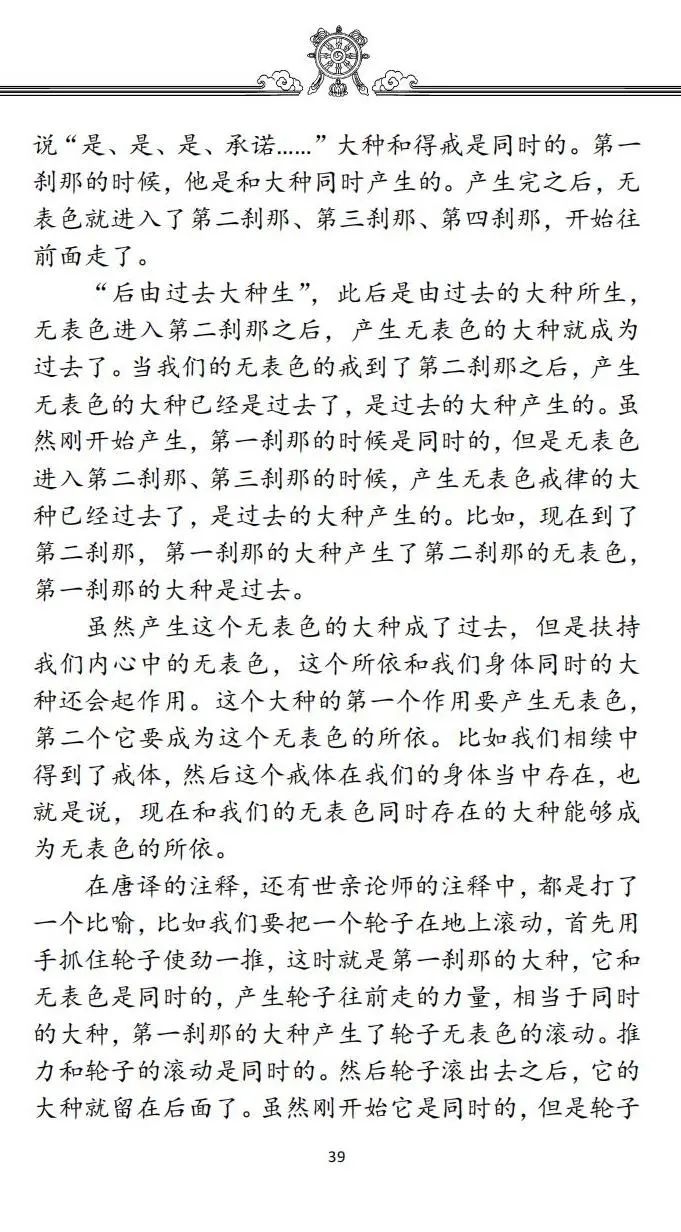 说“是、是、是、承诺……”大种和得戒是同时的。第一
刹那的时候，他是和大种同时产生的。产生完之后，无
表色就进入了第二刹那、第三刹那、第四刹那，开始往
前面走了。
“后由过去大种生”，此后是由过去的大种所生，
无表色进入第二刹那之后，产生无表色的大种就成为
过去了。当我们的无表色的戒到了第二刹那之后，产生
无表色的大种已经是过去了，是过去的大种产生的。虽
然刚开始产生，第一刹那的时候是同时的，但是无表色
进入第二刹那、第三刹那的时候，产生无表色戒律的大
种已经过去了，是过去的大种产生的。比如，现在到了
第二刹那，第一刹那的大种产生了第二刹那的无表色，
第一刹那的大种是过去。
虽然产生这个无表色的大种成了过去，但是扶持
我们内心中的无表色，这个所依和我们身体同时的大
种还会起作用。这个大种的第一个作用要产生无表色，
第二个它要成为这个无表色的所依。比如我们相续中
得到了戒体，然后这个戒体在我们的身体当中存在，也
就是说，现在和我们的无表色同时存在的大种能够成
为无表色的所依。
在唐译的注释，还有世亲论师的注释中，都是打了
一个比喻，比如我们要把一个轮子在地上滚动，首先用
手抓住轮子使劲一推，这时就是第一刹那的大种，它和
无表色是同时的，产生轮子往前走的力量，相当于同时
的大种，第一刹那的大种产生了轮子无表色的滚动。推
力和轮子的滚动是同时的。然后轮子滚出去之后，它的
大种就留在后面了。虽然刚开始它是同时的，但是轮子
39